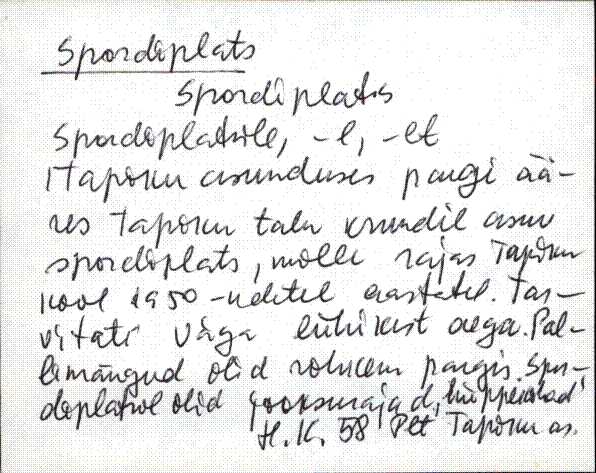 Spordiplats
Spordiplatis
Spordiplatsile, -l, -lt
Taporu asunduses pargi ää-
res Taporu talu krundil asuv
spordiplats, mille rajas Taporu
kool 1950-ndatel aastatel. Tar-
vitati väga lühikest aega. Pal-
limängud olid rohkem pargis. Spor-
diplatsil olid jooksurajad, hüppekohad
H. K. 58 Taporu as.